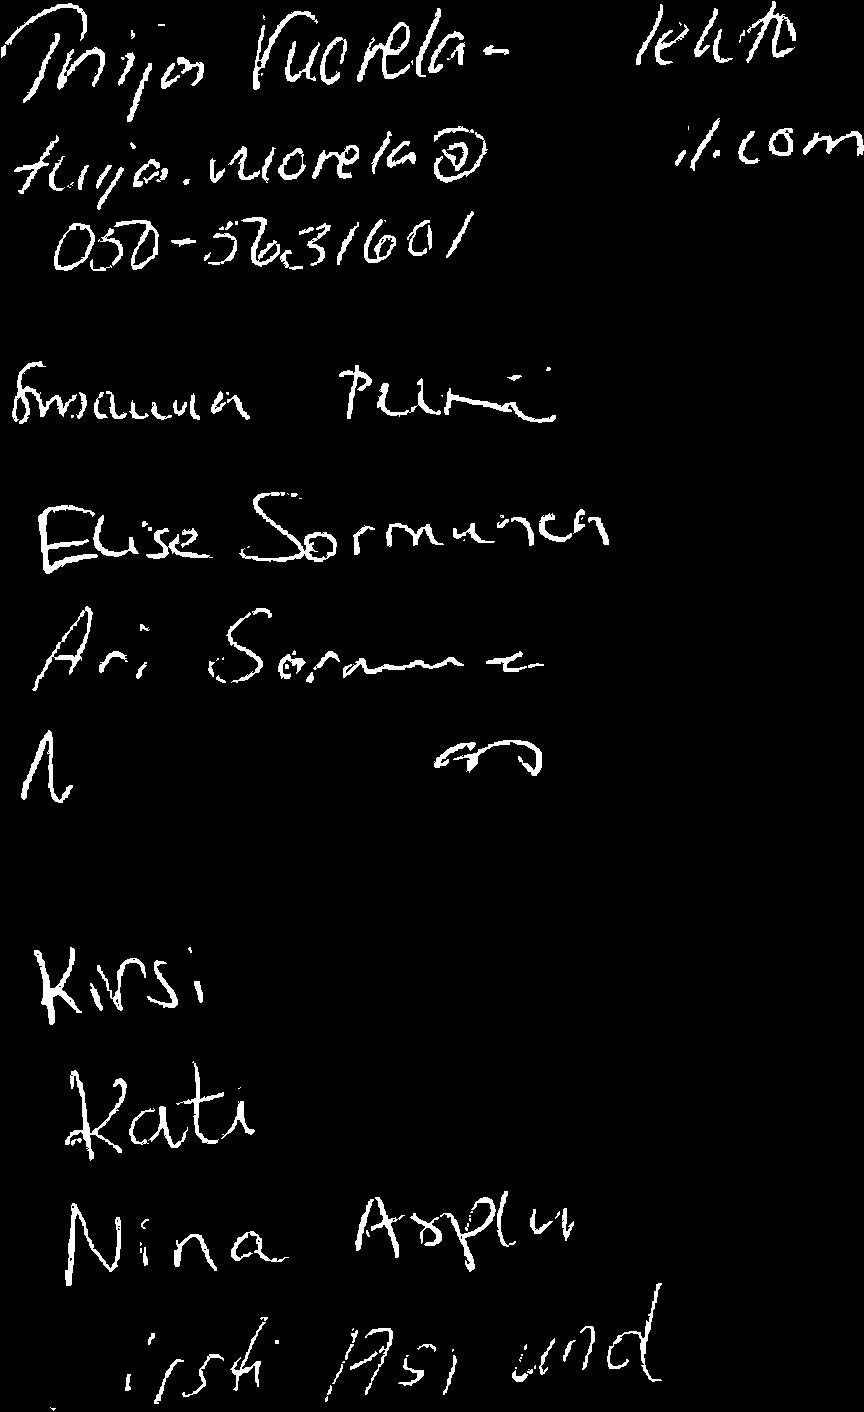 Tuija Vuorela- lehto
tuija.vuorela@ il.com
050-5631601
Susanna
Elise Sormunen
Ari
Kirsi
Kati
Nina Asplu
irsti As und